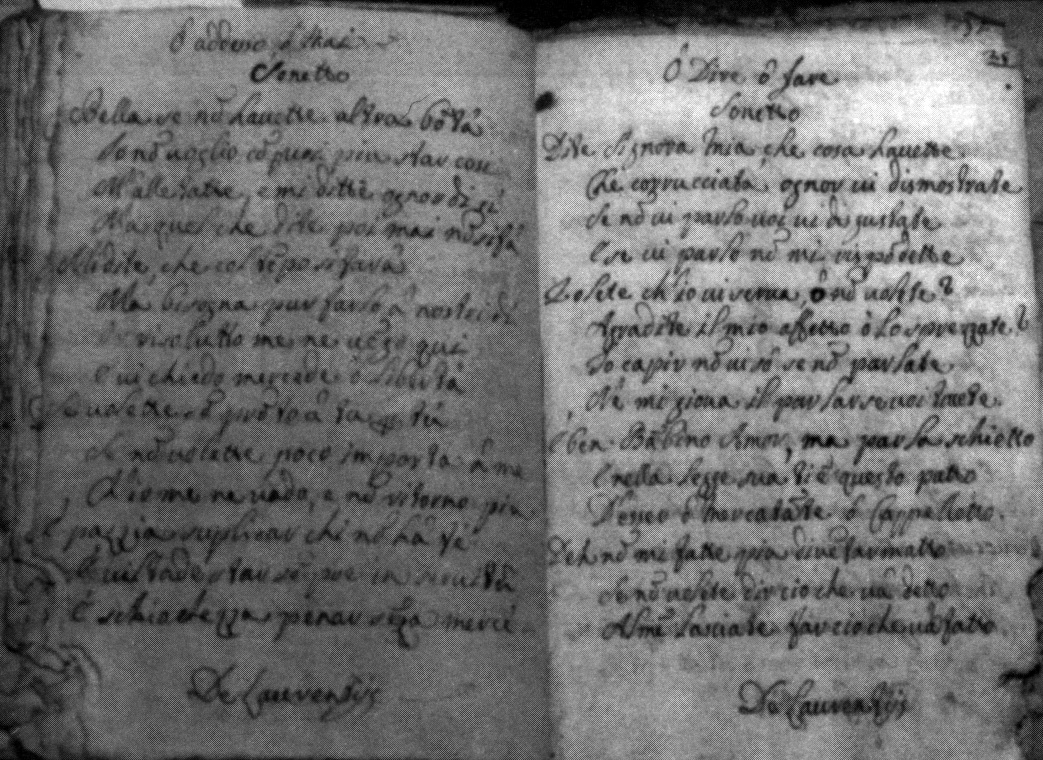 Ô adesso ò mai
Sonetto
Bella se nõ havette altra bõtà
Io nõ voglio cõ più star cosi
M'allettatte, e mi dittê ognor di si
Ma quel che dite poi mai nõ si fà
Mi dite, che col tẽpo si farà
Ma bisogna pur farlo à nostri dì
risolutto me ne vẽgo qui
E vi chiedo mercede ò libertà
Se volette sõ prõto à tu tù
Se nõ volette poco importa à me
Ch'io me ne vado, e nõ ritorno più
È pazzia suplicar chi nõ hà fè
star sẽpre in servitù
È schiochezza penar sẽza mercè
De Laurentijs
25
Ô Dire ô fare
Sonetto
Dite Signora mia che cosa havette
Che corrucciata ognor vi dismostrate
Se nõ vi parlo voi vi disgustate
E se vi parlo nõ mi rispõdette
Volete ch'io vi serva, ô nõ volete?
Agradite il mio affetto ò lo sprezzate?
Io capir nõ vi sò se nõ parlate
Nè mi giova il parlar se voi tacete
È ben Bãbino Amor, ma parla schietto
E nella legge sua ti è questo patto
D'esser ò mercatãte ò Cappelletto.
Deh nõ mi fatte più divẽtar matto
Se nõ volete dir ciò che và detto
Almẽ lasciate far ciò che và fatto.
De Laurentijs